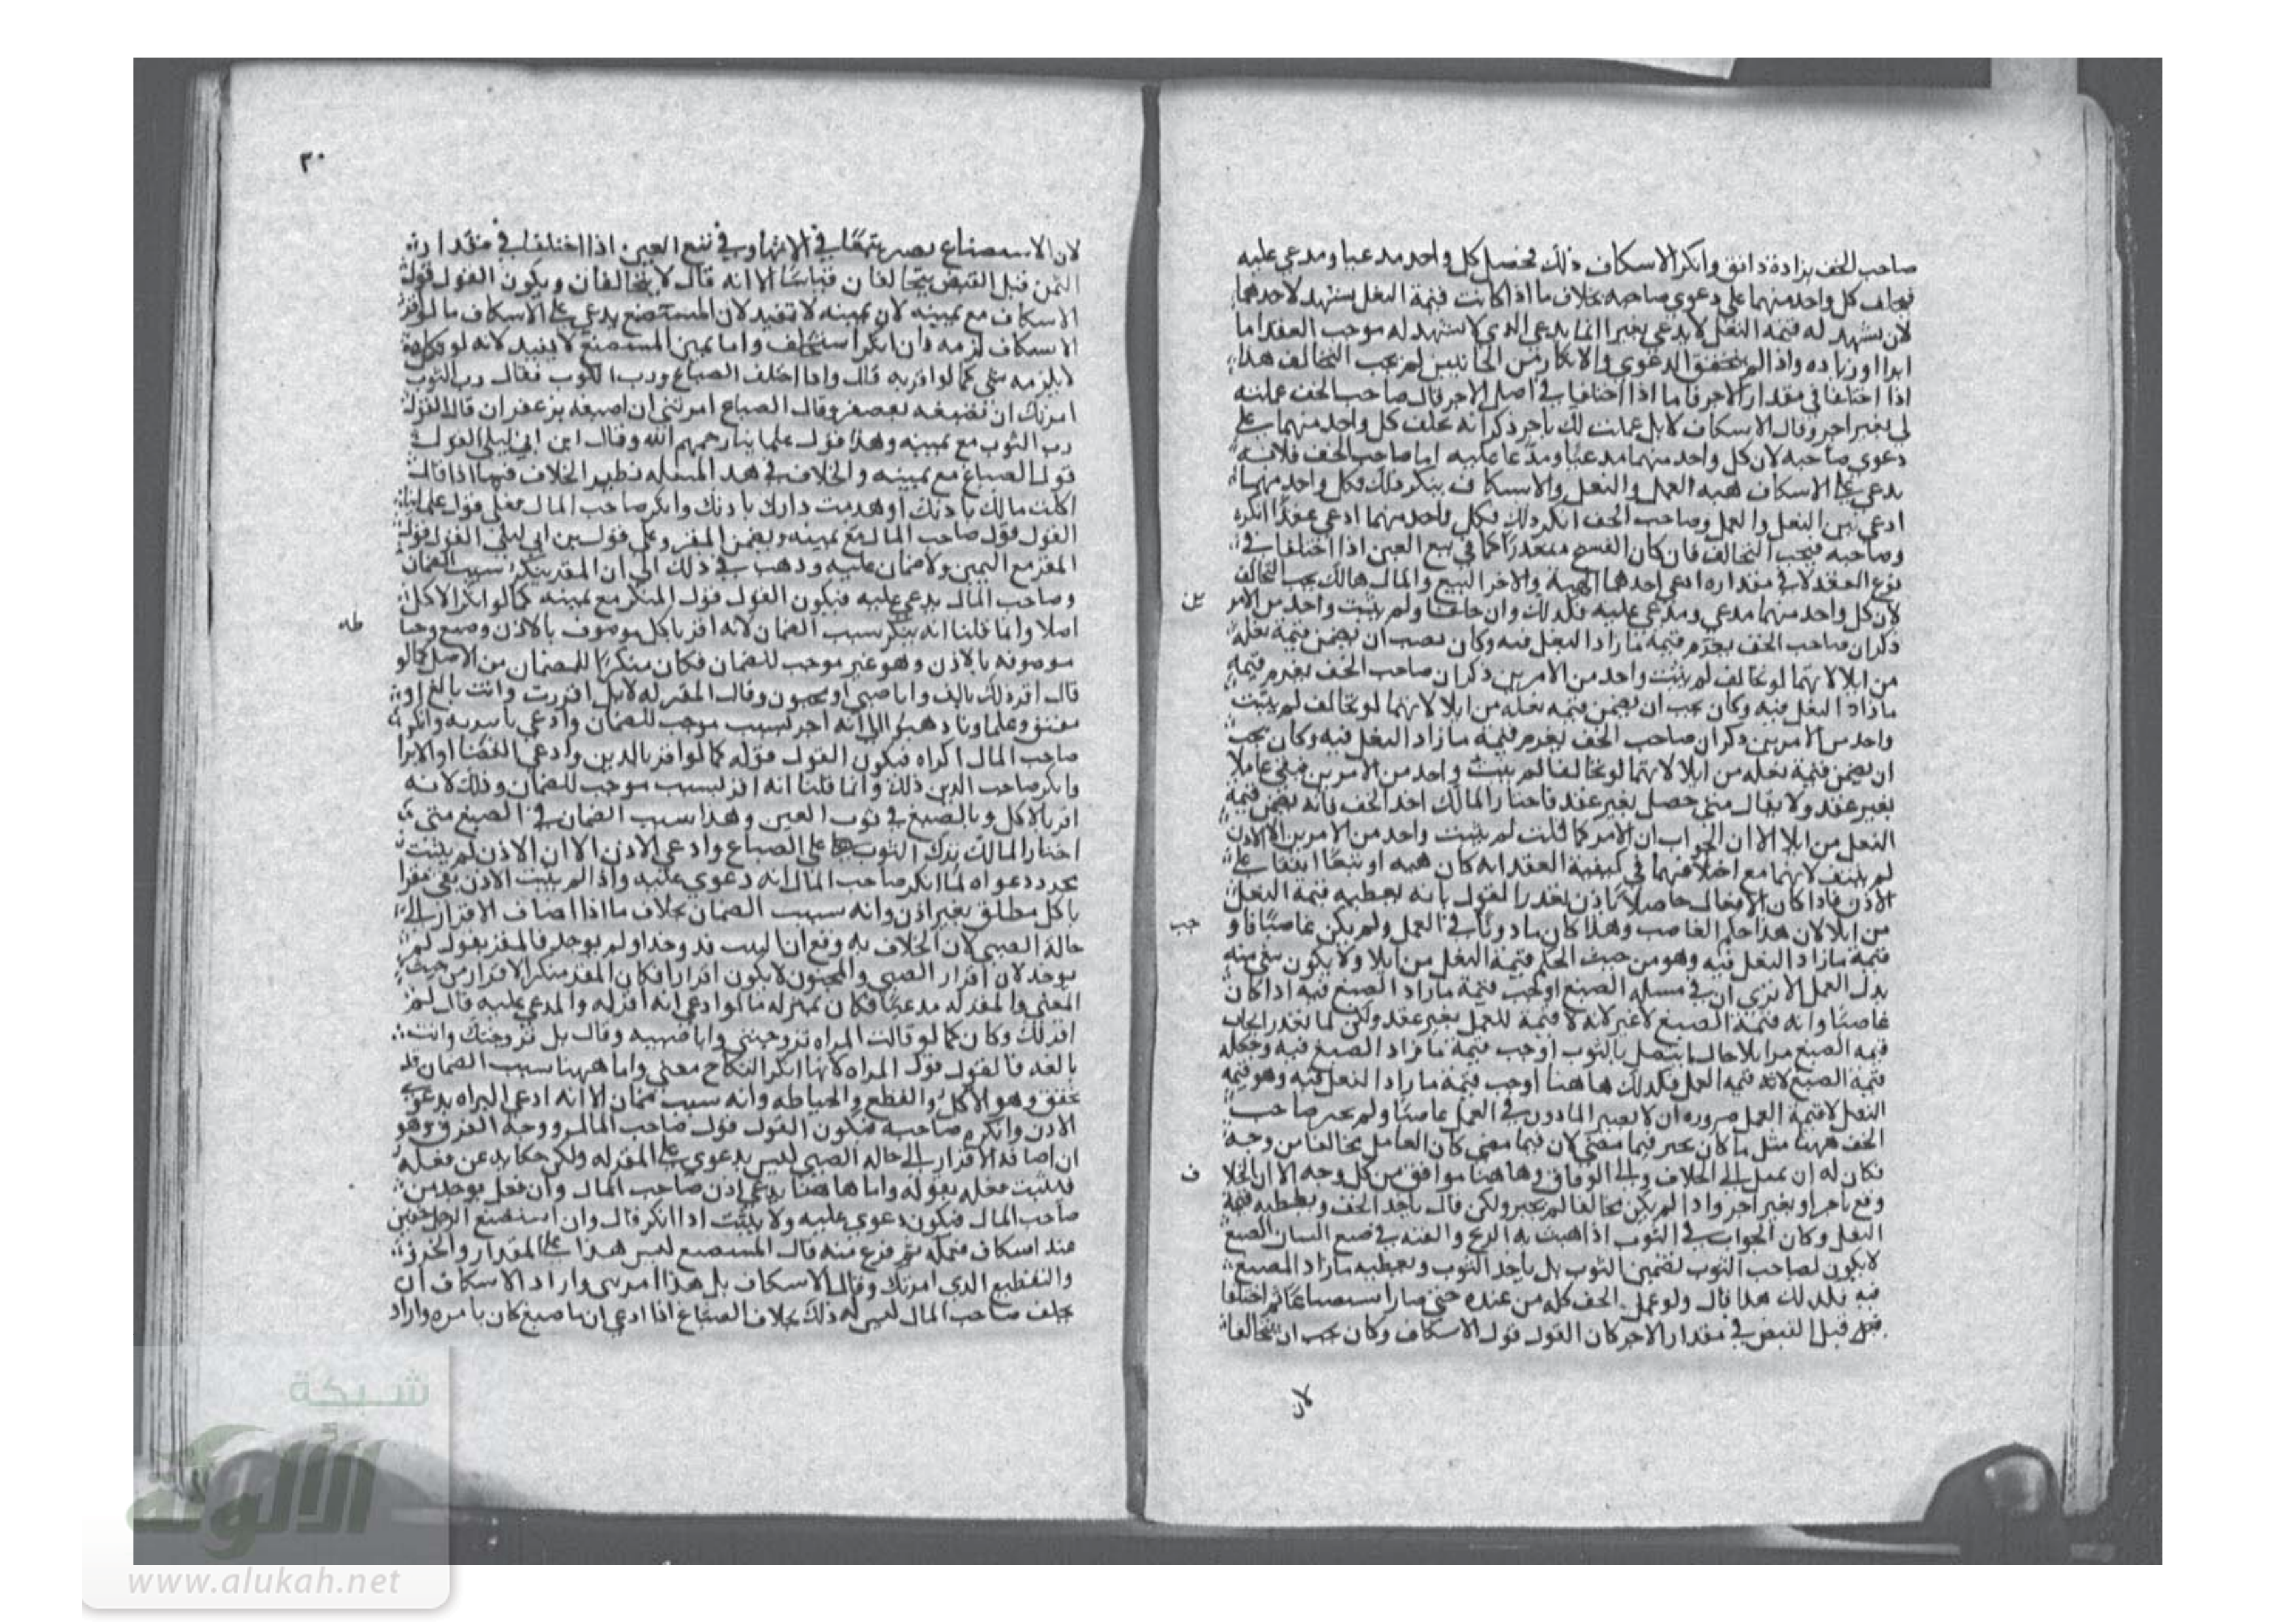 صاحب الخف بزيادة دانق وانكر الاسكاف ذلك فحصل كل واحد مدعيا ومدعى عليه
فيحلف كل واحد منهما على دعوى صاحبه بخلاف ما اذا كانت قيمة النعل يشهد لاحدهما
لان يشهد له قيمة النعل لا يدعي يغيرا انما يدعى الذي لا يشهد له موجب العقد اما
ابرا او زياده واذا لم يتحقق الدعوى والانكار من الجانبين لم يجب التحالف هذا
اذا اختلفا في مقدار الاجر فاما اذا اختلفا في اصل الاجر قال صاحب الخف عملته
لي بغير اجر وقال الاسكاف لا بل عملت لك باجر ذكر انه يحلف كل واحد منهما على
دعوى صاحبه لان كل واحد منهما مدعيا ومدعا عليه اما صاحب الخف فلانه
يدعي على الاسكاف هبه العمل والنعل والاسكاف ينكر ذلك فكل واحد منهما
ادعى ثمن النعل والعمل وصاحب الخف انكر ذلك فكل واحد منهما ادعى عقدا انكره
وصاحبه فيجب التحالف فان كان الفسخ متعذرا كما في بيع العين اذا اختلفا في
نوع العقد لا في مقداره ادعى احدهما الهبة والاخر البيع والمال هالك يجب التحالف
لان كل واحد منهما مدعي ومدعى عليه فكذلك وان حلفا ولم يثبت واحد من الامر
ين
ذكر ان صاحب الخف يغرم قيمة ما زاد النعل فيه وكان يجب ان يضمن قيمة نعله
من ابلا لانهما لو تحالف لم يثبت واحد من الامرين ذكر ان صاحب الخف يغرم قيمة
ما زاد النعل فيه وكان يجب ان يضمن قيمة نعله من ابلا لانهما لو تحالف لم يثبت
واحد من الامرين ذكر ان صاحب الخف يغرم قيمة ما زاد النعل فيه وكان يجب
ان يضمن قيمة نعله من ابلا لانهما لو تحالفا لم يثبت واحد من الامرين فبقي عاملا
بغير عقد ولا يقال متى حصل بغير عقد فاختار المالك اخذ الخف فانه يضمن قيمة
النعل من ابلا الا ان الجواب ان الامر كما قلت لم يثبت واحد من الامرين الا الاذن
لم ينتف لانهما مع اختلافهما في كيفية العقد انه كان هبه او بيعا اتفقا على
الاذن فاذا كان الافعال حاصلا باذن تعذر القول بانه يعطيه قيمة النعل
من ابلا لان هذا حكم الغاصب وهذا كان ماذونا في العمل ولم يكن غاصبا فاو
جب
قيمة ما زاد النعل فيه وهو من حيث الحكم قيمة النعل من ابلا ولا يكون شي منه
بدل العمل الا ترى ان في مسلة الصبغ اوجب قيمة ما زاد الصبغ فيه اذا كان
غاصبا وانه قيمة الصبغ لا غير لانه لا قيمة للعمل بغير عقد ولكن لما تعذر ايجاب
قيمه الصبغ من ابلا حال ما يتصل بالثوب اوجب قيمة ما زاد الصبغ فيه وجعله
قيمة الصبغ لانه قيمه العمل فكذلك هاهنا اوجب قيمة ما زاد النعل فيه وهو قيمة
النعل لا قيمة العمل ضروره ان لا يصير الماذون في العمل غاصبا ولم يخير صاحب
الخف ههنا مثل ما كان يخير فيما مضى لان فيما مضى كان العامل مخالفا من وجه
فكان له ان يميل الى الخلاف والى الوفاق وهاهنا موافق من كل وجه الا ان الخلا
ف
وقع باجر او بغير اجر واذا لم يكن مخالفا لم يخير ولكن قال ياخذ الخف ويعطيه قيمة
النعل وكان الجواب في الثوب اذا هبت به الريح والقته في صبغ انسان الصبغ
لا يكون لصاحب الثوب تضمين الثوب بل ياخذ الثوب ويعطيه ما زاد الصبغ
فيه فكذلك هذا قال ولو عمل الخف كله من عنده حتى صار استصناعا ثم اختلفا
قبل القبض في مقدار الاجر كان القول قول الاسكاف وكان يجب ان يتحالفا
لان
٣٠
لان الاستصناع يصير بيعا في الانتها وفي بيع العين اذا اختلفا في مقدار
الثمن قبل القبض يتحالفان قياسا الا انه قال لا يتحالفان ويكون القول قول
الاسكاف مع يمينه لان يمينه لا تفيد لان المستصنع يدعي على الاسكاف ما لو اقر
الاسكاف لزمه وان انكر استحلف واما يمين المستصنع لا يفيد لانه لو نكل
لا يلزمه شي كما لو اقر به قال واذا اختلف الصباغ ورب الثوب فقال رب الثوب
امرتك ان تصبغه بعصفر وقال الصباغ امرتني ان اصبغه بزعفران قال القول
رب الثوب مع يمينه وهذا قول علماينا رحمهم الله وقال ابن ابي ليلى القول
قول الصباغ مع يمينه والخلاف في هذه المسله نظير الخلاف فيما اذا قال
اكلت مالك باذنك او هدمت دارك باذنك وانكر صاحب المال فعلى قول علماينا
القول قول صاحب المال مع يمينه ويضمن المقر وعلى قول بن ابي ليلى القول قول
المقر مع اليمين ولا ضمان عليه وذهب في ذلك الى ان المقر ينكر سبب الضمان
وصاحب المال يدعي عليه فيكون القول قول المنكر مع يمينه كما لو انكر الاكل
اصلا وانما قلنا انه ينكر سبب الضمان لانه اقر باكل موصوف بالاذن وصبغ وخيا
طه
موصوفه بالاذن وهو غير موجب للضمان فكان منكرا للضمان من الاصل كما لو
قال اقررت لك بالف وانا صبي او مجنون وقال المقر له لا بل اقررت وانت بالغ او
مفيق وعلماونا ذهبوا الى انه اخبر بسبب موجب للضمان وادعى ما يبريه وانكر
صاحب المال اكراه فيكون القول قوله كما لو اقر بالدين وادعى القضا او الابرا
وانكر صاحب الدين ذلك وانما قلنا انه اقر بسبب موجب للضمان وذلك لانه
اقر بالاكل وبالصبغ في ثوب العين وهذا سبب الضمان في الصبغ متى
اختار المالك ترك الثوب على الصباغ وادعى الاذن الا ان الاذن لم يثبت
بمجرد دعواه لما انكر صاحب المال انه دعوى عليه واذا لم يثبت الاذن بقي مقرا
باكل مطلق بغير اذن وانه سبب الضمان بخلاف ما اذا اضاف الاقرار الى
حالة الصبي لان الخلاف به وقع ان السبب قد وجد او لم يوجد فالمقر يقول لم
يوجد لان اقرار الصبي والمجنون لا يكون اقرارا فكان المقر منكرا الاقرار من حيث
المعنى والمقر له مدعيا فكان بمنزلة ما لو ادعى انه اقر له والمدعى عليه قال لم
اقر لك وكان كما لو قالت المراه تزوجتني وانا صبيه وقال بل تزوجتك وانت
بالغه فالقول قول المراه لانها انكر النكاح معنى واما ههنا سبب الضمان قد
تحقق وهو الاكل والقطع والخياطه وانه سبب ضمان الا انه ادعى البراه بدعوى
الاذن وانكره صاحبه فيكون القول قول صاحب المال ووجه الفرق وهو
ان اضافه الاقرار الى حاله الصبي ليس بدعوى على المقر له ولكن حكايه عن فعله
فيثبت فعله بقوله واما هاهنا يدعي اذن صاحب المال وان فعل يوجد من
صاحب المال فيكون دعوى عليه ولا يثبت اذا انكر قال وان استصنع الرجل خفين
عند اسكاف فعمله ثم فرغ منه قال المستصنع ليس هذا على المقدار والخرز
والتقطيع الذي امرتك وقال الاسكاف بل هذا امرتني واراد الاسكاف ان
يحلف صاحب المال ليس له ذلك بخلاف الصباغ اذا ادعى ان ما صبغ كان بامره واراد
شبكة
الألوكة
www.alukah.net